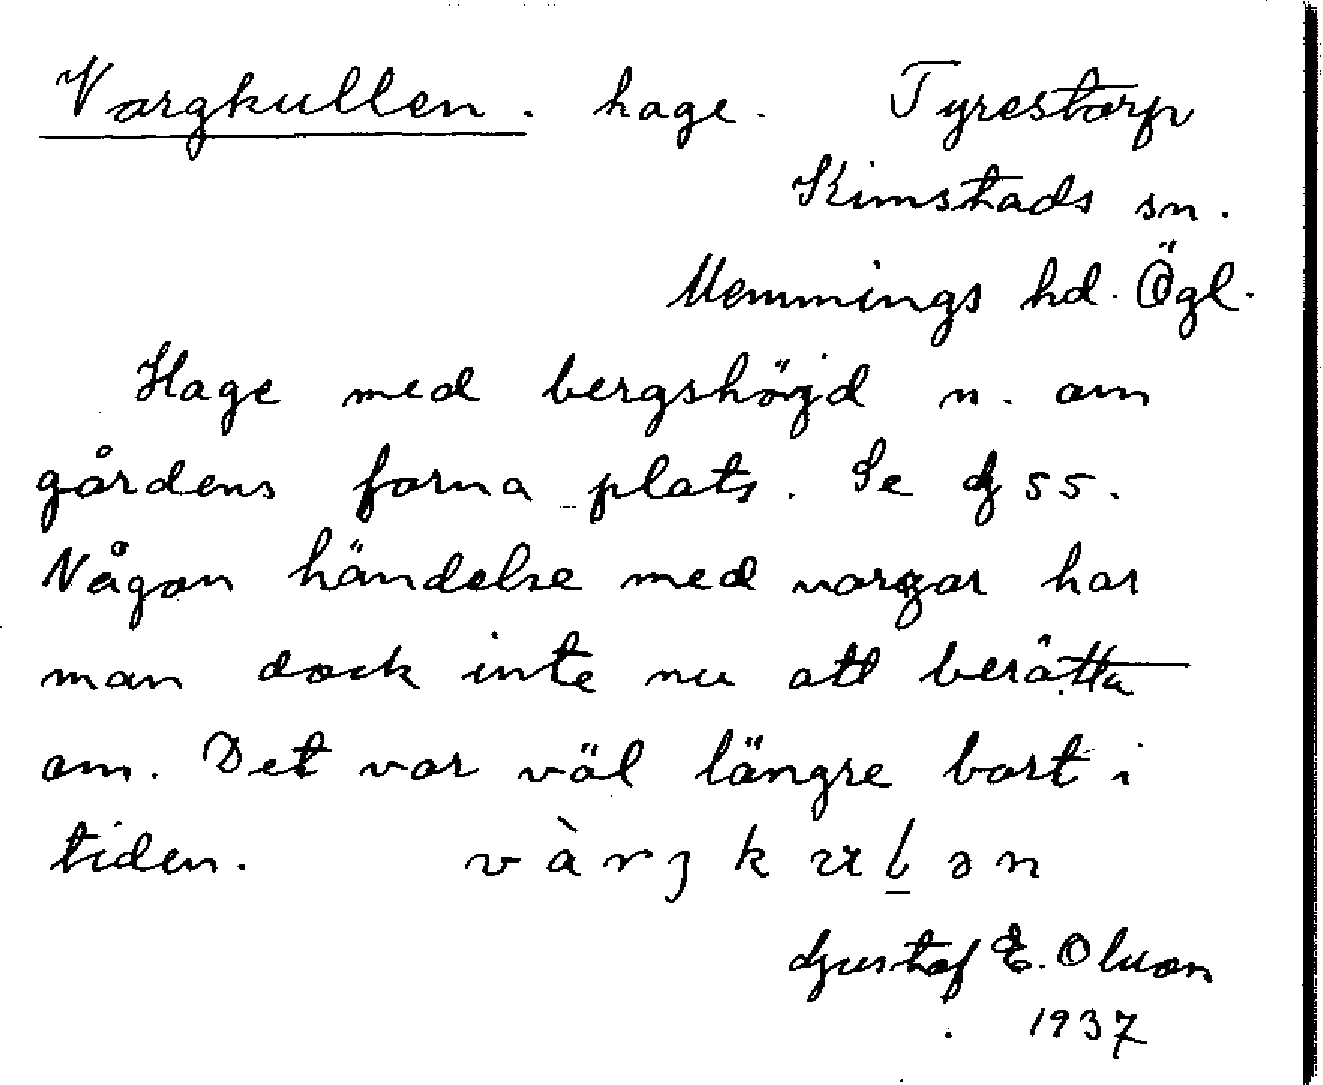 Vargkullen. hage. Tyrestorp
Kimstads sn.
Memmings hd. Ögl.
Hage med bergshöjd n. om
gårdens forna plats. Se G 55.
Någon händelse med vargar har
man dock inte nu att berätta
om. Det var väl längre bort i
tiden. v à r ʒ k ɯ l ə n
Gustaf E. Olsson
1937